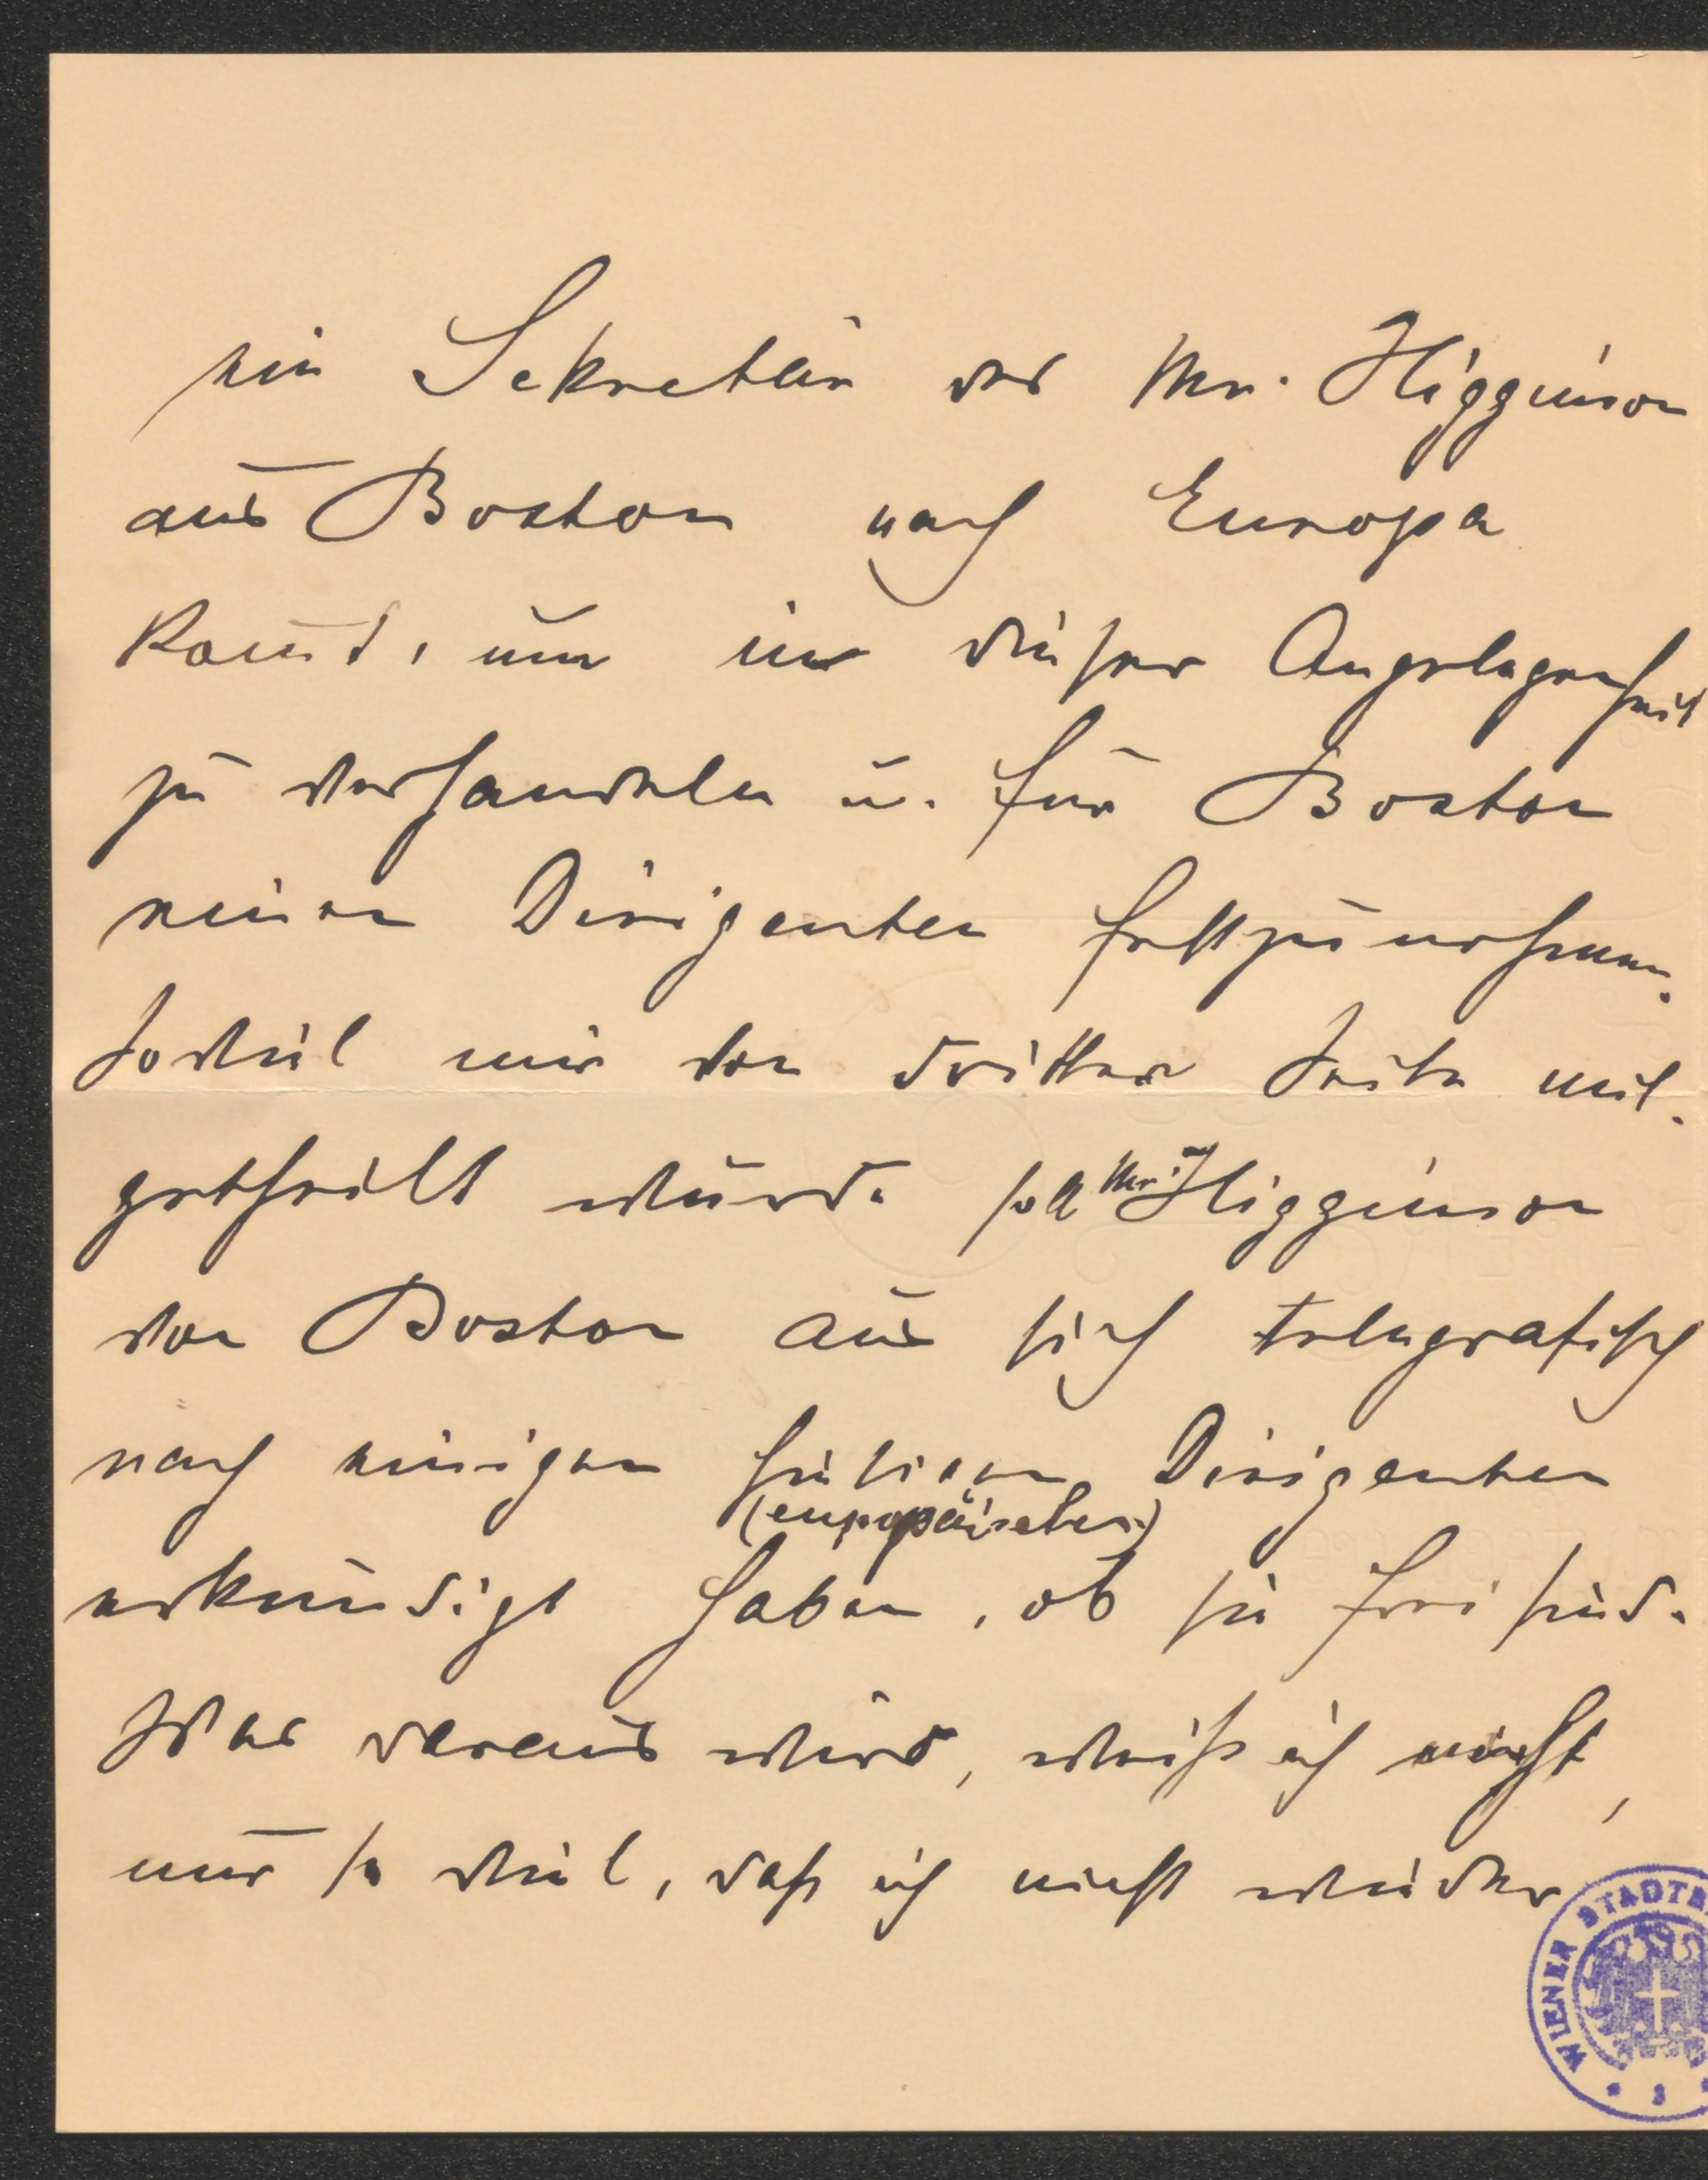 ein Sekretär des Mr. Higginson
aus Boston nach Europa
komt, um in dieser Angelegenheit
zu verhandeln u. für Boston
einen Dirigenten festzunehmen.
Soviel mir von dritter Seite mit-
getheilt wurde soll Mr. Higginson
von Boston aus sich telegrafisch
nach einigen hiesigen Dirigenten
(europäischen)
erkundigt haben, ob sie frei sind.
Was daraus wird, weiß ich nicht,
nur so viel, daß ich nicht wieder
WIENER STADTB